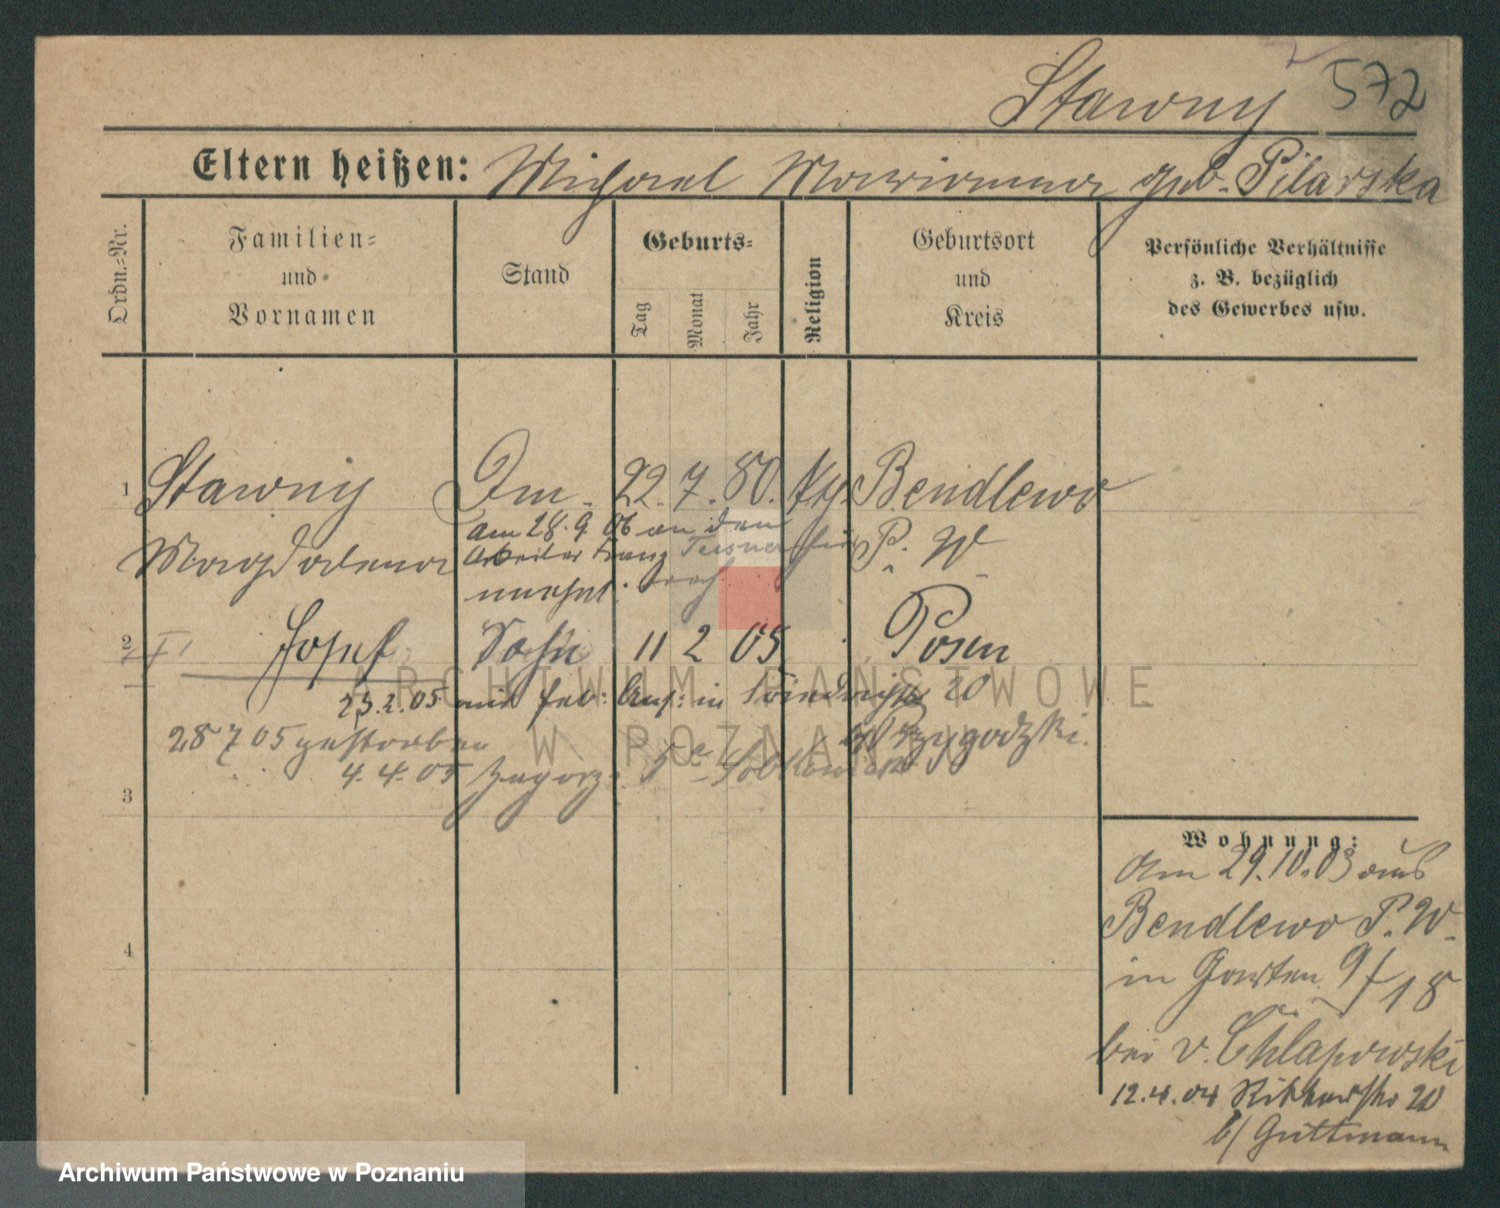 Stawny 572
Eltern heißen: Michael Marianna geb. Pilarska
Ordn.-Nr.
Familien-
und
Vornamen
Stand
Geburts-
Tag
Monat
Jahr
Religion
Geburtsort
und
Kreis
Persönliche Verhältnisse
z. B. bezüglich
des Gewerbes usw.
1 Stawny Dm. 22. 7. 80. kth Bendlewo
am 28. 9 06 an den
Magdalena Arbeiter Franz P. W
2 Josef Sohn 11 2 05 Posen
23.2.05 in 20
28 7 05 gestorben b/ Przygodzki.
4. 4. 05
3
4
Wohnung:
Am 29.10.03 aus
Bendlewo P. W.
in Garten 9/18
bei v. Chlapowski
12.4.04 20
b/ Guttmann
ARCHIWUM PAŃSTWOWE
W POZNANIU
Archiwum Państwowe w Poznaniu